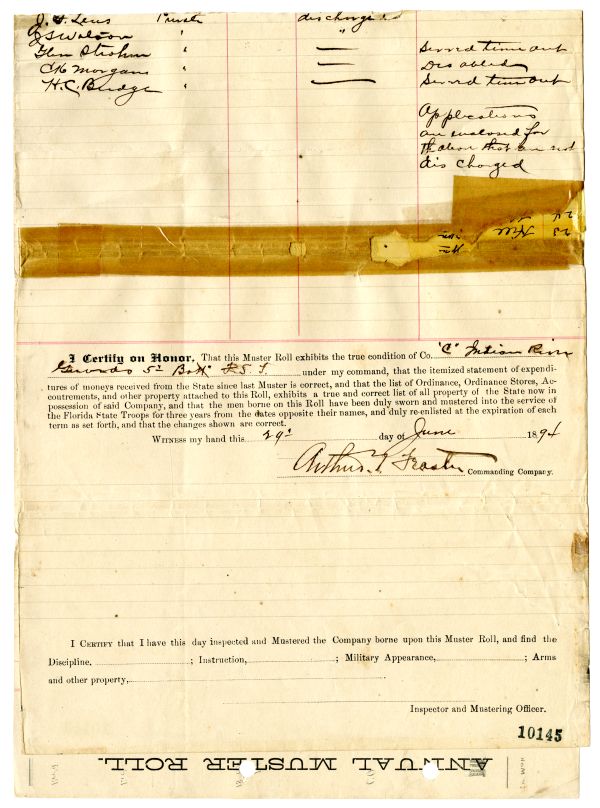 J. S. Lens Private discharged
J S Watson " "
Glen Strohm " — Served time out
C H Morgan " — Disabled
H. C. Budge " — Served time out
Applications
are enclosed for
those that are not
discharged
24
23 Hill
I Certify on Honor, That this Muster Roll exhibits the true condition of Co. "C" Indian River
Guards 5th Batt F S T under my command, that the itemized statement of expendi-
tures of moneys received from the State since last Muster is correct, and that the list of Ordinance, Ordinance Stores, Ac-
coutrements, and other property attached to this Roll, exhibits a true and correct list of all property of the State now in
possession of said Company, and that the men borne on this Roll have been duly sworn and mustered into the service of
the Florida State Troops for three years from the dates opposite their names, and duly re-enlisted at the expiration of each
term as set forth, and that the changes shown are correct.
Witness my hand this 29th day of June 1894
Arthur T. Feaster Commanding Company.
I Certify that I have this day inspected and Mustered the Company borne upon this Muster Roll, and find the
Discipline, ; Instruction, ; Military Appearance, ; Arms
and other property,
Inspector and Mustering Officer.
10145
ANNUAL MUSTER ROLL.